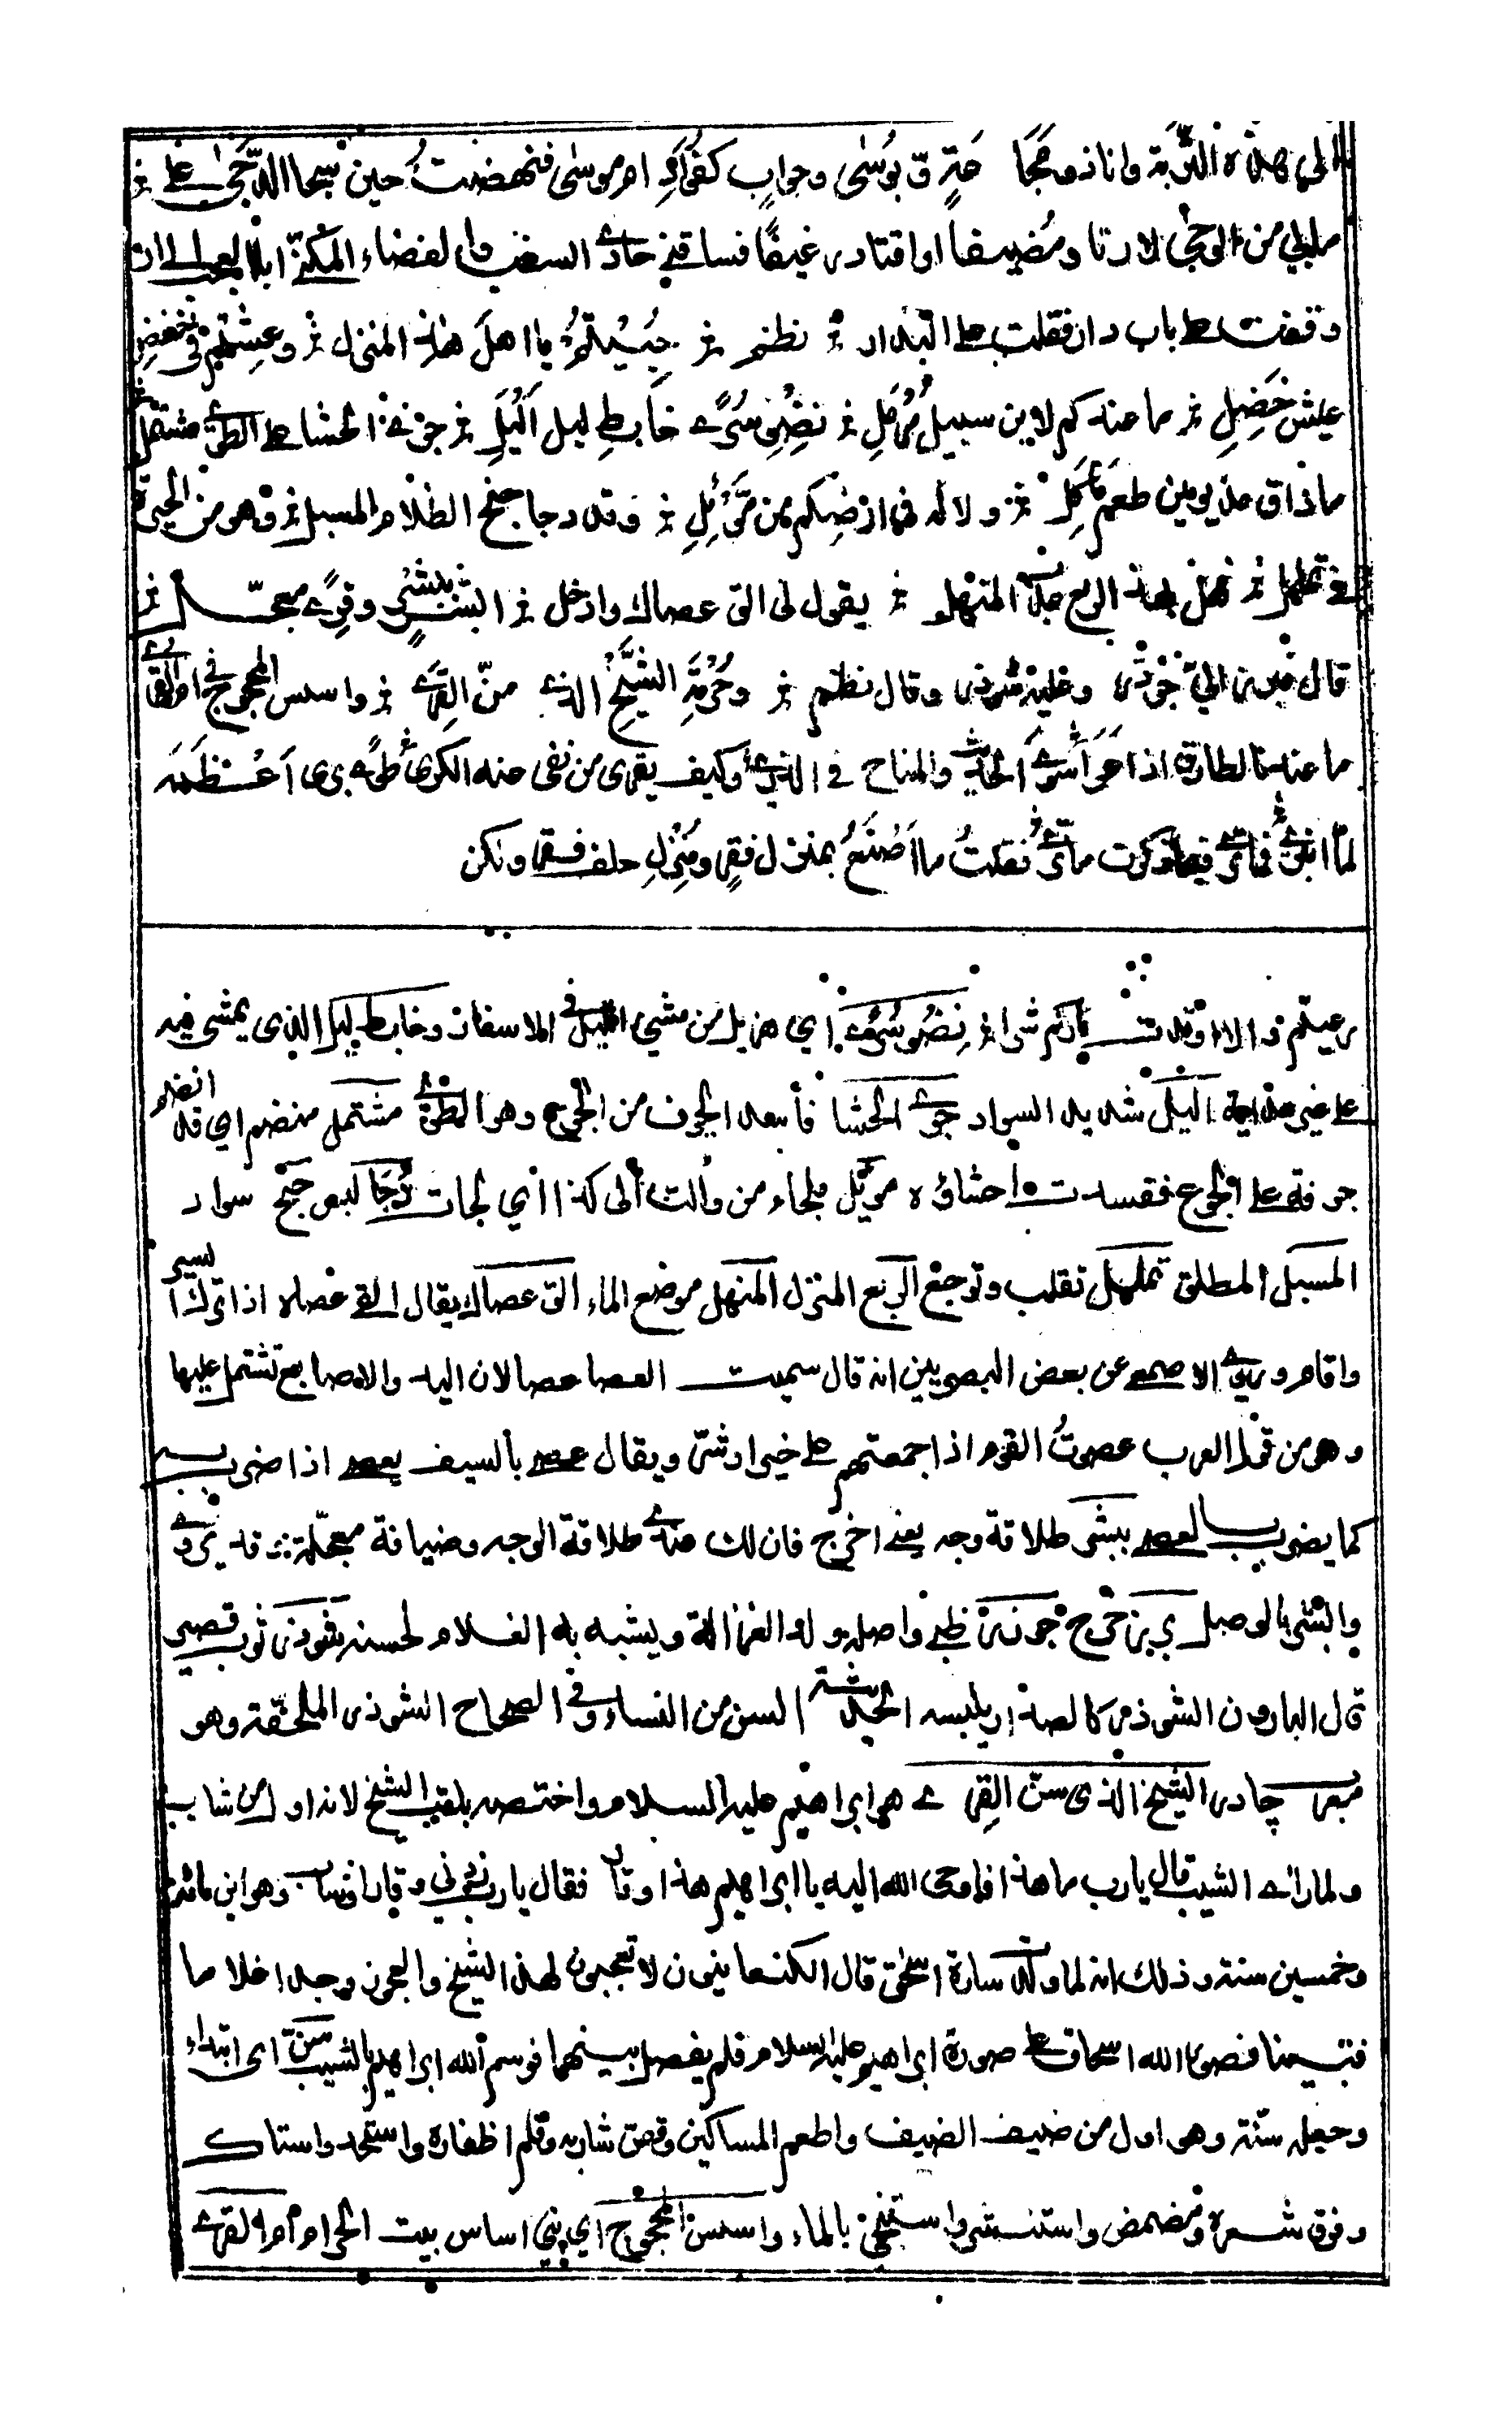 الي هذه التربة وانا ذو مجاعة بوسى وجراب كفؤاد ام موسى فنهضت حين سجا الدجى على
ما بي من الوجى لارتاد مضيفا او اقتاد رغيفا فساقني حادي السغب والقضاء المكنى ابا العجب الى ان
وقفت على باب دار فقلت على البدار نظم حييتم يا اهل هذا المنزل وعشتم في خفض
عيش خضل ما عندكم لابن سبيل مرمل نضو سرى خابط ليل اليل جوى الحشا على الطوى مشتمل
ما ذاق مذ يومين طعم ماكل ولا له في ارضكم من موئل وقد دجا جنح الظلام المسبل وهو من الحيرة
في تململ فهل بهذا الربع عذب المنهل يقول لي الق عصاك وادخل وابشر ببشر وقرى معجل
قال فبرز الي جوذر وعليه شوذر وقال نظم وحرمة الشيخ الذي سن القرى واسس المحجوج في ام القرى
ما عندنا لطارق اذا عرا سوى الحديث والمناخ في الذرى وكيف يقري من نفى عنه الكرى طوى برى اعظمه
لما انبرى فما ترى فيما ذكرت ما ترى فقلت ما اصنع بمنزل قفر ومنزل حلف فقر ولكن
رعيتم والا اوقدت ناركم شرا نضو سرى اي هزيل من مشي الليل في الاسفار وخابط ليل الذي يمشي فيه
على غير هداية اليل شديد السواد جوى الحشا فاسد الجوف من الجوع وهو الطوى مشتمل منضم اي قد انضم
جوفه على الجوع ففسدت احشاؤه موئل ملجاء من والت الى كذا اي لجات دجا لبس جنح سواد
المسبل المطلق تململ تقلب وتوجع الربع المنزل المنهل موضع الماء الق عصاك يقال القى عصاه اذا ترك السير
واقام وروى الاصمعي عن بعض البصريين انه قال سميت العصا عصا لان اليد والاصابع تشتمل عليها
وهو من قول العرب عصوت القوم اذا جمعتهم على خير او شر ويقال عصى بالسيف يعصى اذا ضرب
كما يضرب بالعصى ببشر طلاقة وجه يعني اخرج فان لك عندي طلاقة الوجه وضيافة معجلة قد يروى
والبشر بالوصل برز خرج جوذر ظبي واصله ولد الغزالة ويشبه به الغلام لحسنه شوذر ثوب قصير
قال البارون الشوذر كالصدار يلبسه الحديثة السن من النساء وفي الصحاح الشوذر الملحفة وهو
معرب چادر الشيخ الذي سن القرى هو ابراهيم عليه السلام واختص بلقب الشيخ لانه اول من شاب
ولما راى الشيب قال يا رب ما هذا فاوحى الله اليه يا ابراهيم هذا وقار فقال يا رب زدني وقارا فشاب وهو ابن مائة
وخمسين سنة وذلك انه لما ولدت سارة اسحق قال الكنعانيون لا تعجبون لهذا الشيخ والعجوز وجدا غلاما
فتبنيا فصور الله اسحاق على صورة ابراهيم عليه السلام فلم يفصل بينهما فوسم الله ابراهيم بالشيب سن اى ابتداء
وجعله سنة وهو اول من ضيف الضيف واطعم المساكين وقص شاربه وقلم اظفاره واستحد واستاك
وفرق شعره ومضمض واستنشق واستنجى بالماء واسس المحجوج اي بنى اساس بيت الحرام ام القرى